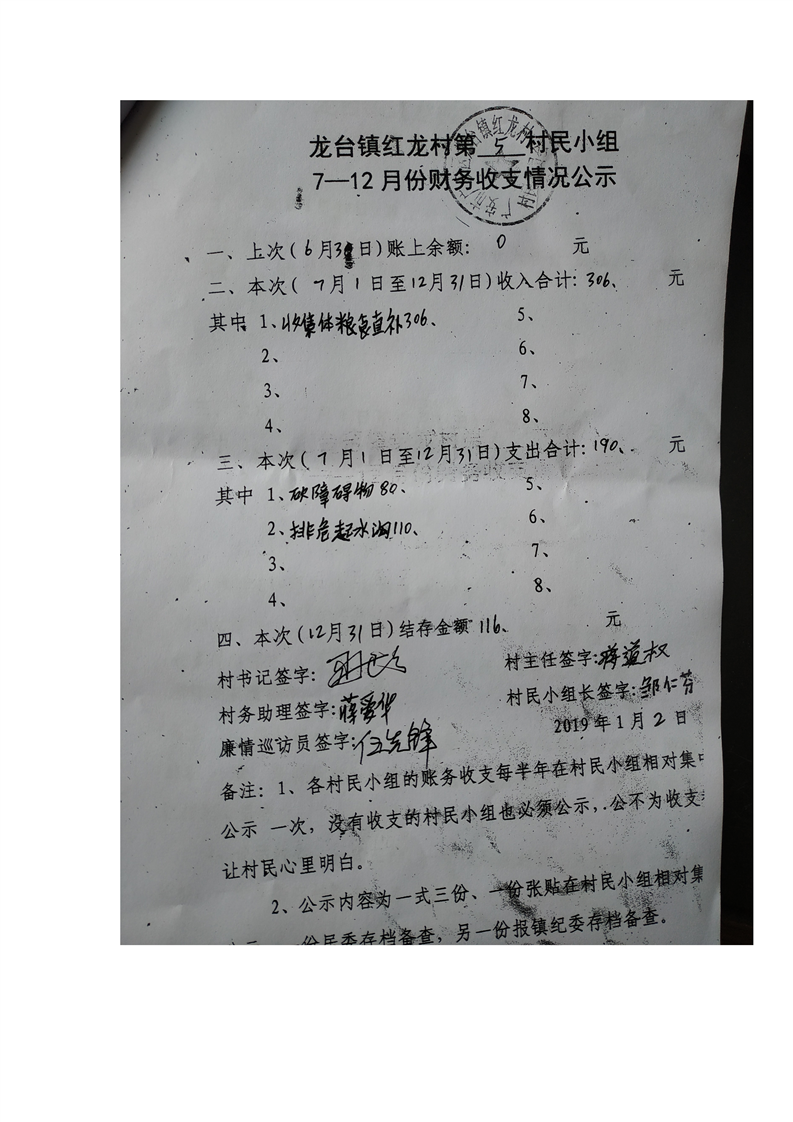 龙台镇红龙村第 5 村民小组
7—12月份财务收支情况公示
一、上次(6月30日)账上余额: 0 元
二、本次( 7月1日至12月31日)收入合计: 306、 元
其中 1、收集体粮食直补306、 5、
2、 6、
3、 7、
4、 8、
三、本次( 7月1日至12月31日)支出合计: 190、 元
其中 1、砍障碍物80、 5、
2、排危起水沟110、 6、
3、 7、
4、 8、
四、本次(12月31日)结存金额 116、 元
村书记签字: 村主任签字:蒋道权
村务助理签字:蒋爱华 村民小组长签字:邹仁芬
廉情巡访员签字:伍先锋 2019年1月2日
备注: 1、各村民小组的账务收支每半年在村民小组相对集中
公示一次,没有收支的村民小组也必须公示,公不为收支
让村民心里明白。
2、公示内容为一式三份、一份张贴在村民小组相对集
份民委存档备查,另一份报镇纪委存档备查。